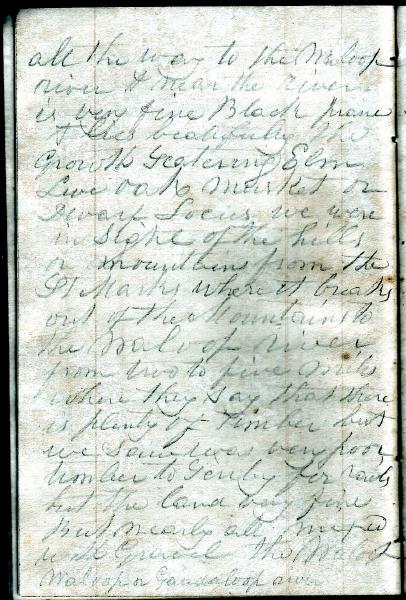 all the way to the Waloop
river & near the river
is very fine Black prarie
& lies beatifully the
Growth Scatering Elm
Live oak Musket or
Dwarf Locus we were
in Sight of the hills
or mountains from the
St Marks where it breaks
out of the Mountains to
the Waloop river
from two to five miles
where they Say that there
is plenty of Timber but
we Saw was very poor
timber to for rails
but the land very fine
But nearly all mixed
with Gravel the
Waloop or Gaudaloop river